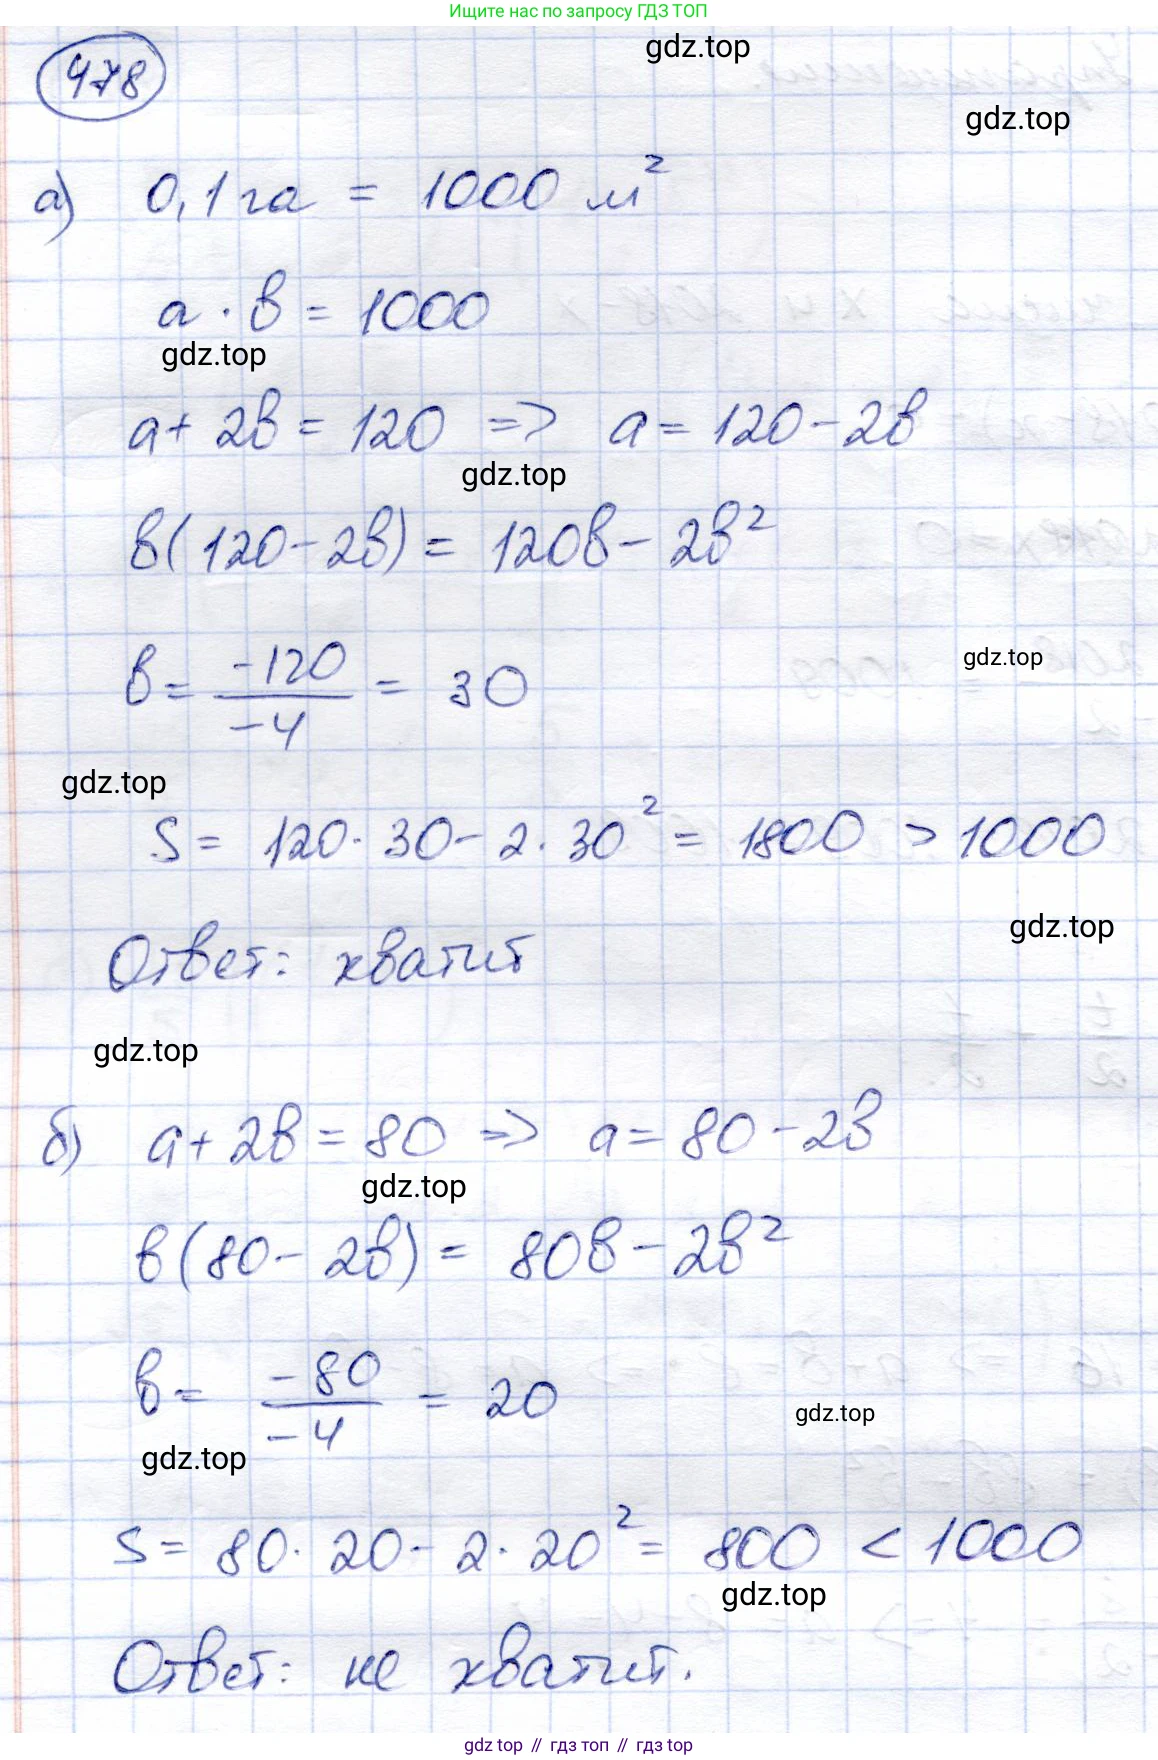 Ищите нас по запросу ГДЗ ТОП
gdz.top
478
gdz.top
а) 0,1 га = 1000 м²
a · b = 1000
gdz.top
a + 2b = 120 => a = 120 - 2b
gdz.top
b(120 - 2b) = 120b - 2b²
b = -120/-4 = 30
gdz.top
gdz.top
S = 120 · 30 - 2 · 30² = 1800 > 1000
gdz.top
Ответ: хватит
gdz.top
б) a + 2b = 80 => a = 80 - 2b
gdz.top
b(80 - 2b) = 80b - 2b²
b = -80/-4 = 20
gdz.top
gdz.top
S = 80 · 20 - 2 · 20² = 800 < 1000
gdz.top
Ответ: не хватит.
gdz top // гдз топ // gdz.top